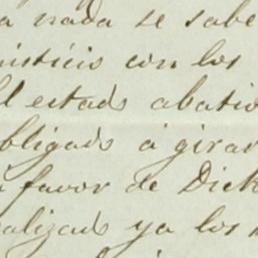 a nada se sabe
misticio con los
El estado abatid
obligado á girar
a favor de Dick
alizado ya los